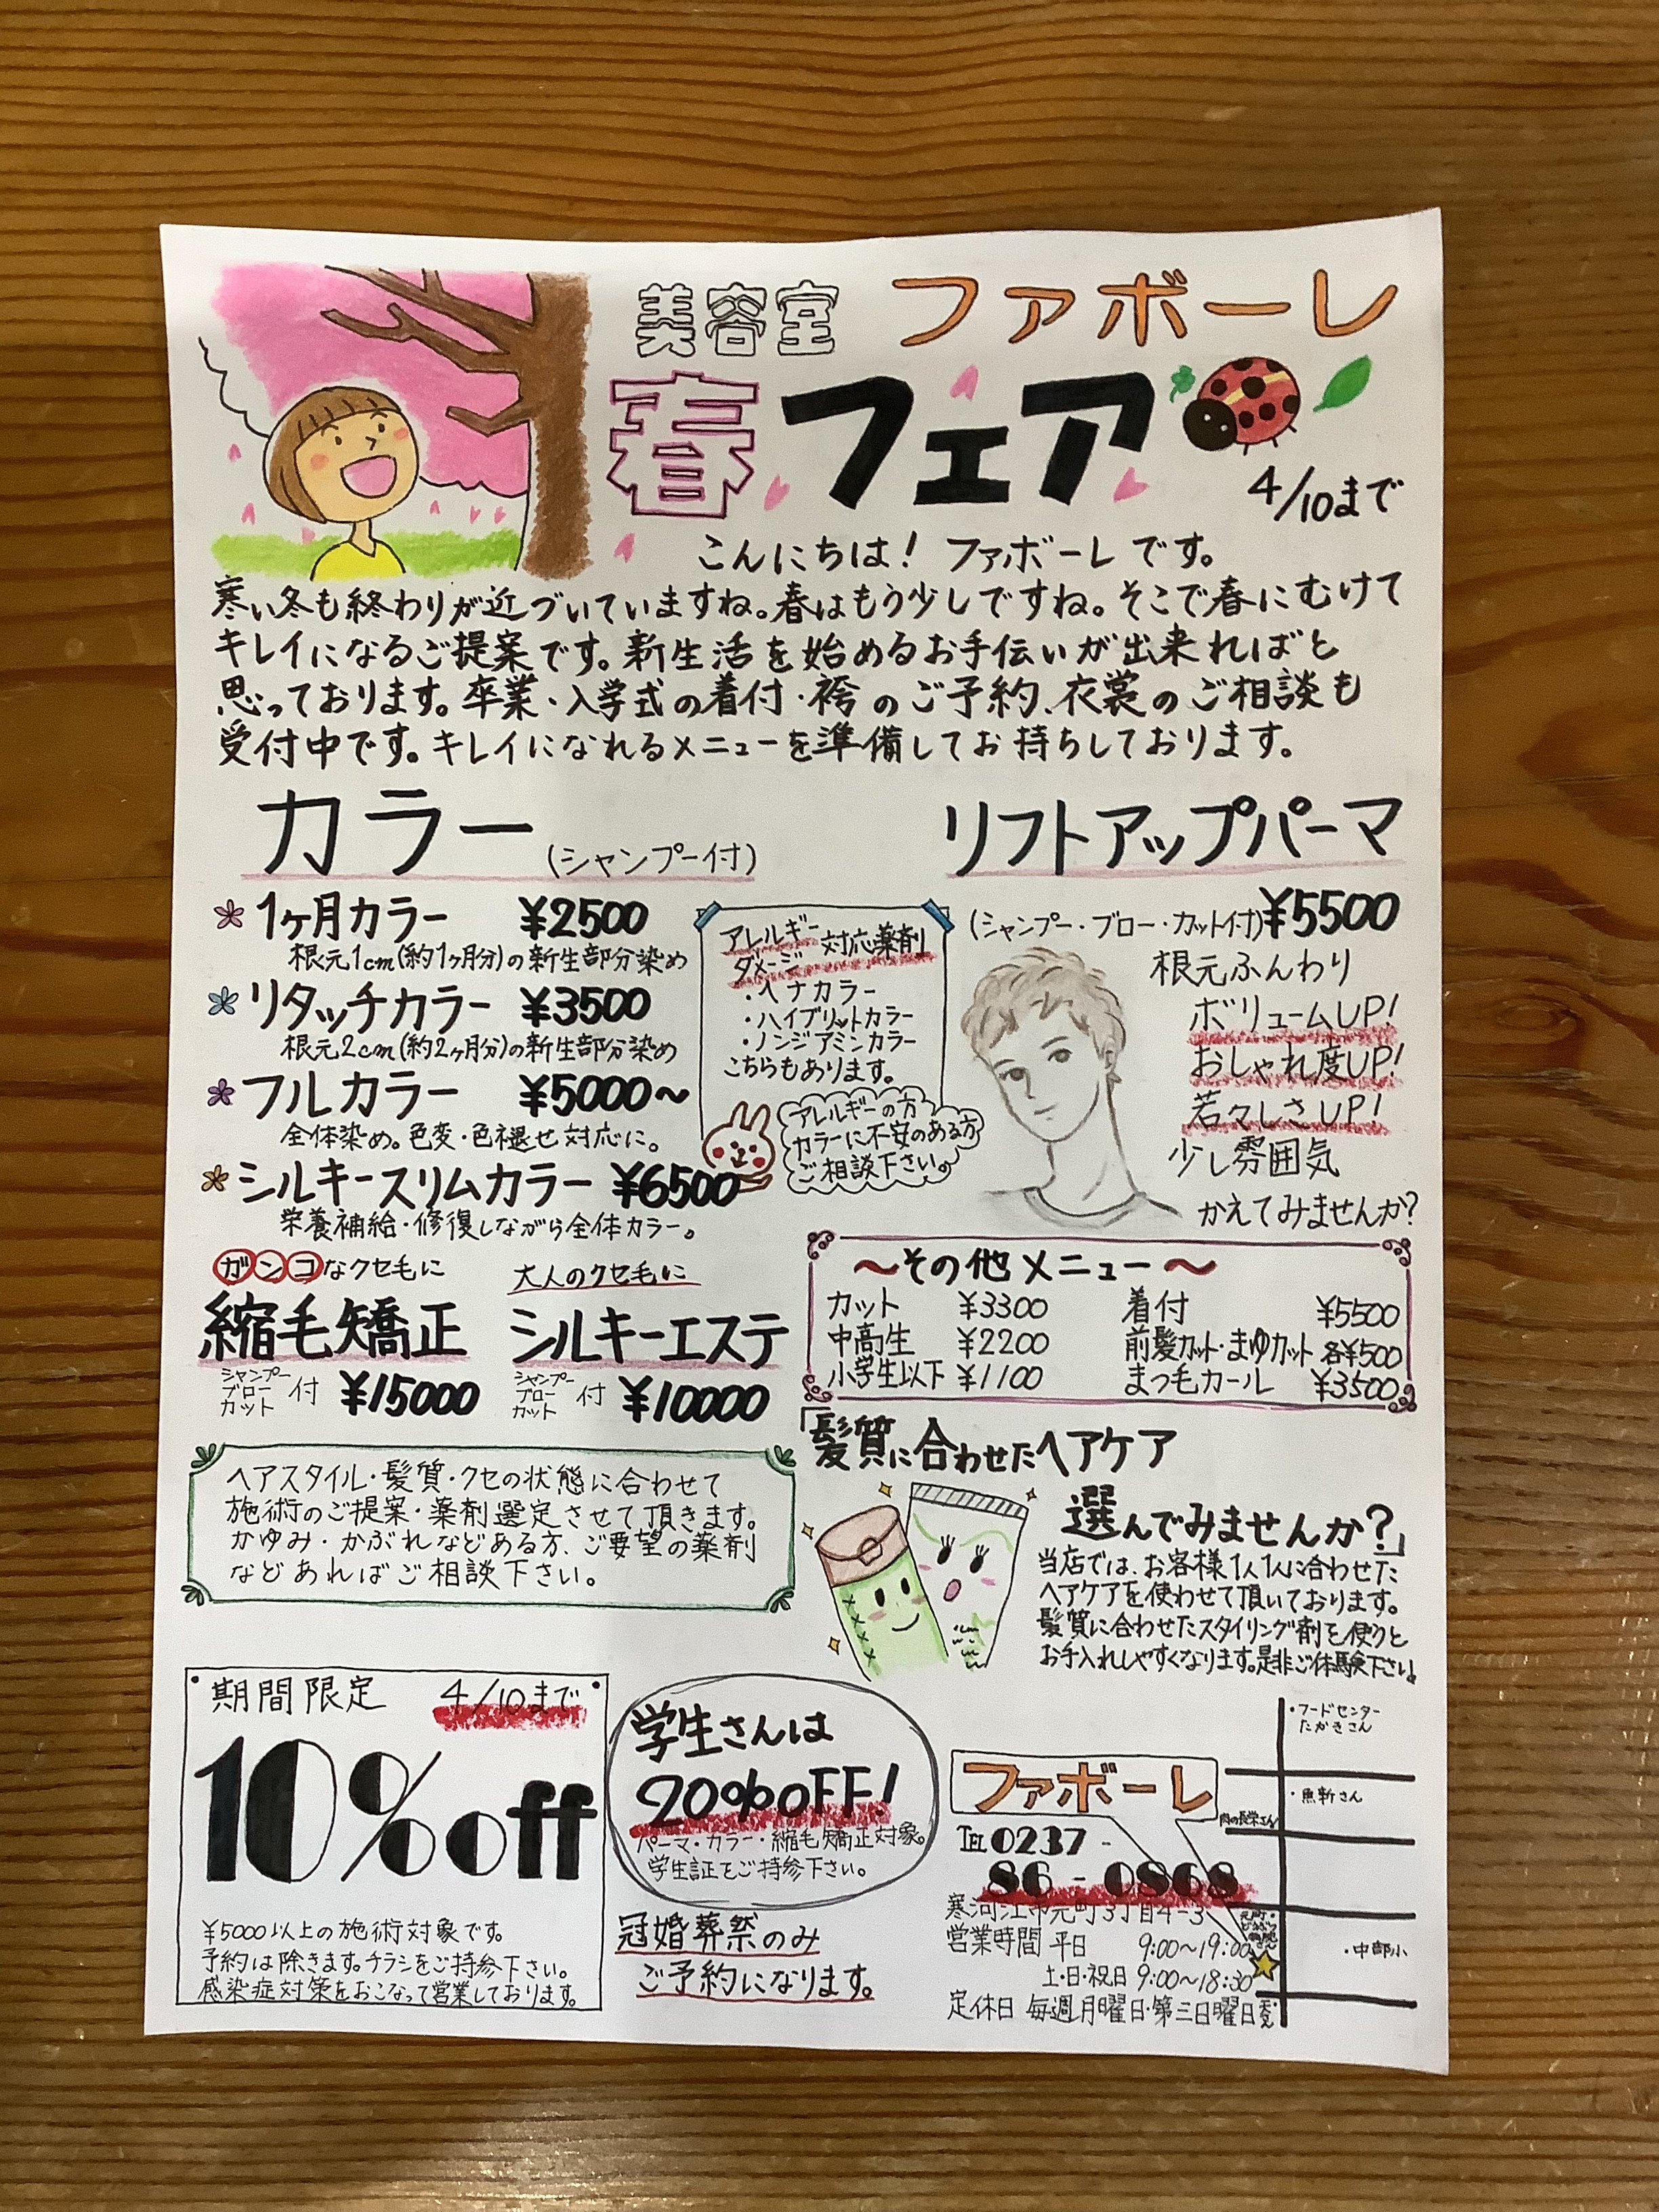 美容室 ファボーレ
春フェア
4/10まで
こんにちは! ファボーレです。
寒い冬も終わりが近づいていますね。春はもう少しですね。そこで春にむけて
キレイになるご提案です。新生活を始めるお手伝いが出来ればと
思っております。卒業・入学式の着付・袴のご予約、衣裳のご相談も
受付中です。キレイになれるメニューを準備してお持ちしております。
カラー (シャンプー付)
1ヶ月カラー ¥2500
根元1cm(約1ヶ月分)の新生部分染め
リタッチカラー ¥3500
根元2cm(約2ヶ月分)の新生部分染め
フルカラー ¥5000〜
全体染め。色変・色褪せ対応に。
シルキースリムカラー ¥6500
栄養補給・修復しながら全体カラー。
アレルギー
ダメージ 対応薬剤
・ヘナカラー
・ハイブリットカラー
・ノンジアミンカラー
こちらもあります。
アレルギーの方
カラーに不安のある方
ご相談下さい。
リフトアップパーマ
(シャンプー・ブロー・カット付)¥5500
根元ふんわり
ボリュームUP!
おしゃれ度UP!
若々しさUP!
少し雰囲気
かえてみませんか?
ガンコなクセ毛に
縮毛矯正
シャンプー
ブロー
カット 付 ¥15000
大人のクセ毛に
シルキーエステ
シャンプー
ブロー
カット 付 ¥10000
〜その他メニュー〜
カット ¥3300
中高生 ¥2200
小学生以下 ¥1100
着付 ¥5500
前髪カット・まゆカット 各¥500
まつ毛カール ¥3500
ヘアスタイル・髪質・クセの状態に合わせて
施術のご提案・薬剤選定させて頂きます。
かゆみ・かぶれなどある方、ご要望の薬剤
などあればご相談下さい。
「髪質に合わせたヘアケア
選んでみませんか?」
当店では、お客様1人1人に合わせた
ヘアケアを使わせて頂いております。
髪質に合わせたスタイリング剤を使うと
お手入れしやすくなります。是非ご体験下さい。
期間限定 4/10まで
10%off
¥5000以上の施術対象です。
予約は除きます。チラシをご持参下さい。
感染症対策をおこなって営業しております。
学生さんは
20%OFF!
パーマ・カラー・縮毛矯正対象。
学生証をご持参下さい。
冠婚葬祭のみ
ご予約になります。
ファボーレ
TEL 0237-
86-0868
寒河江市元町3丁目4-3
営業時間 平日 9:00〜19:00
土・日・祝日 9:00〜18:30
定休日 毎週月曜日・第三日曜日
・フードセンター
たかきさん
・魚新さん
肉の長栄さん
・中部小